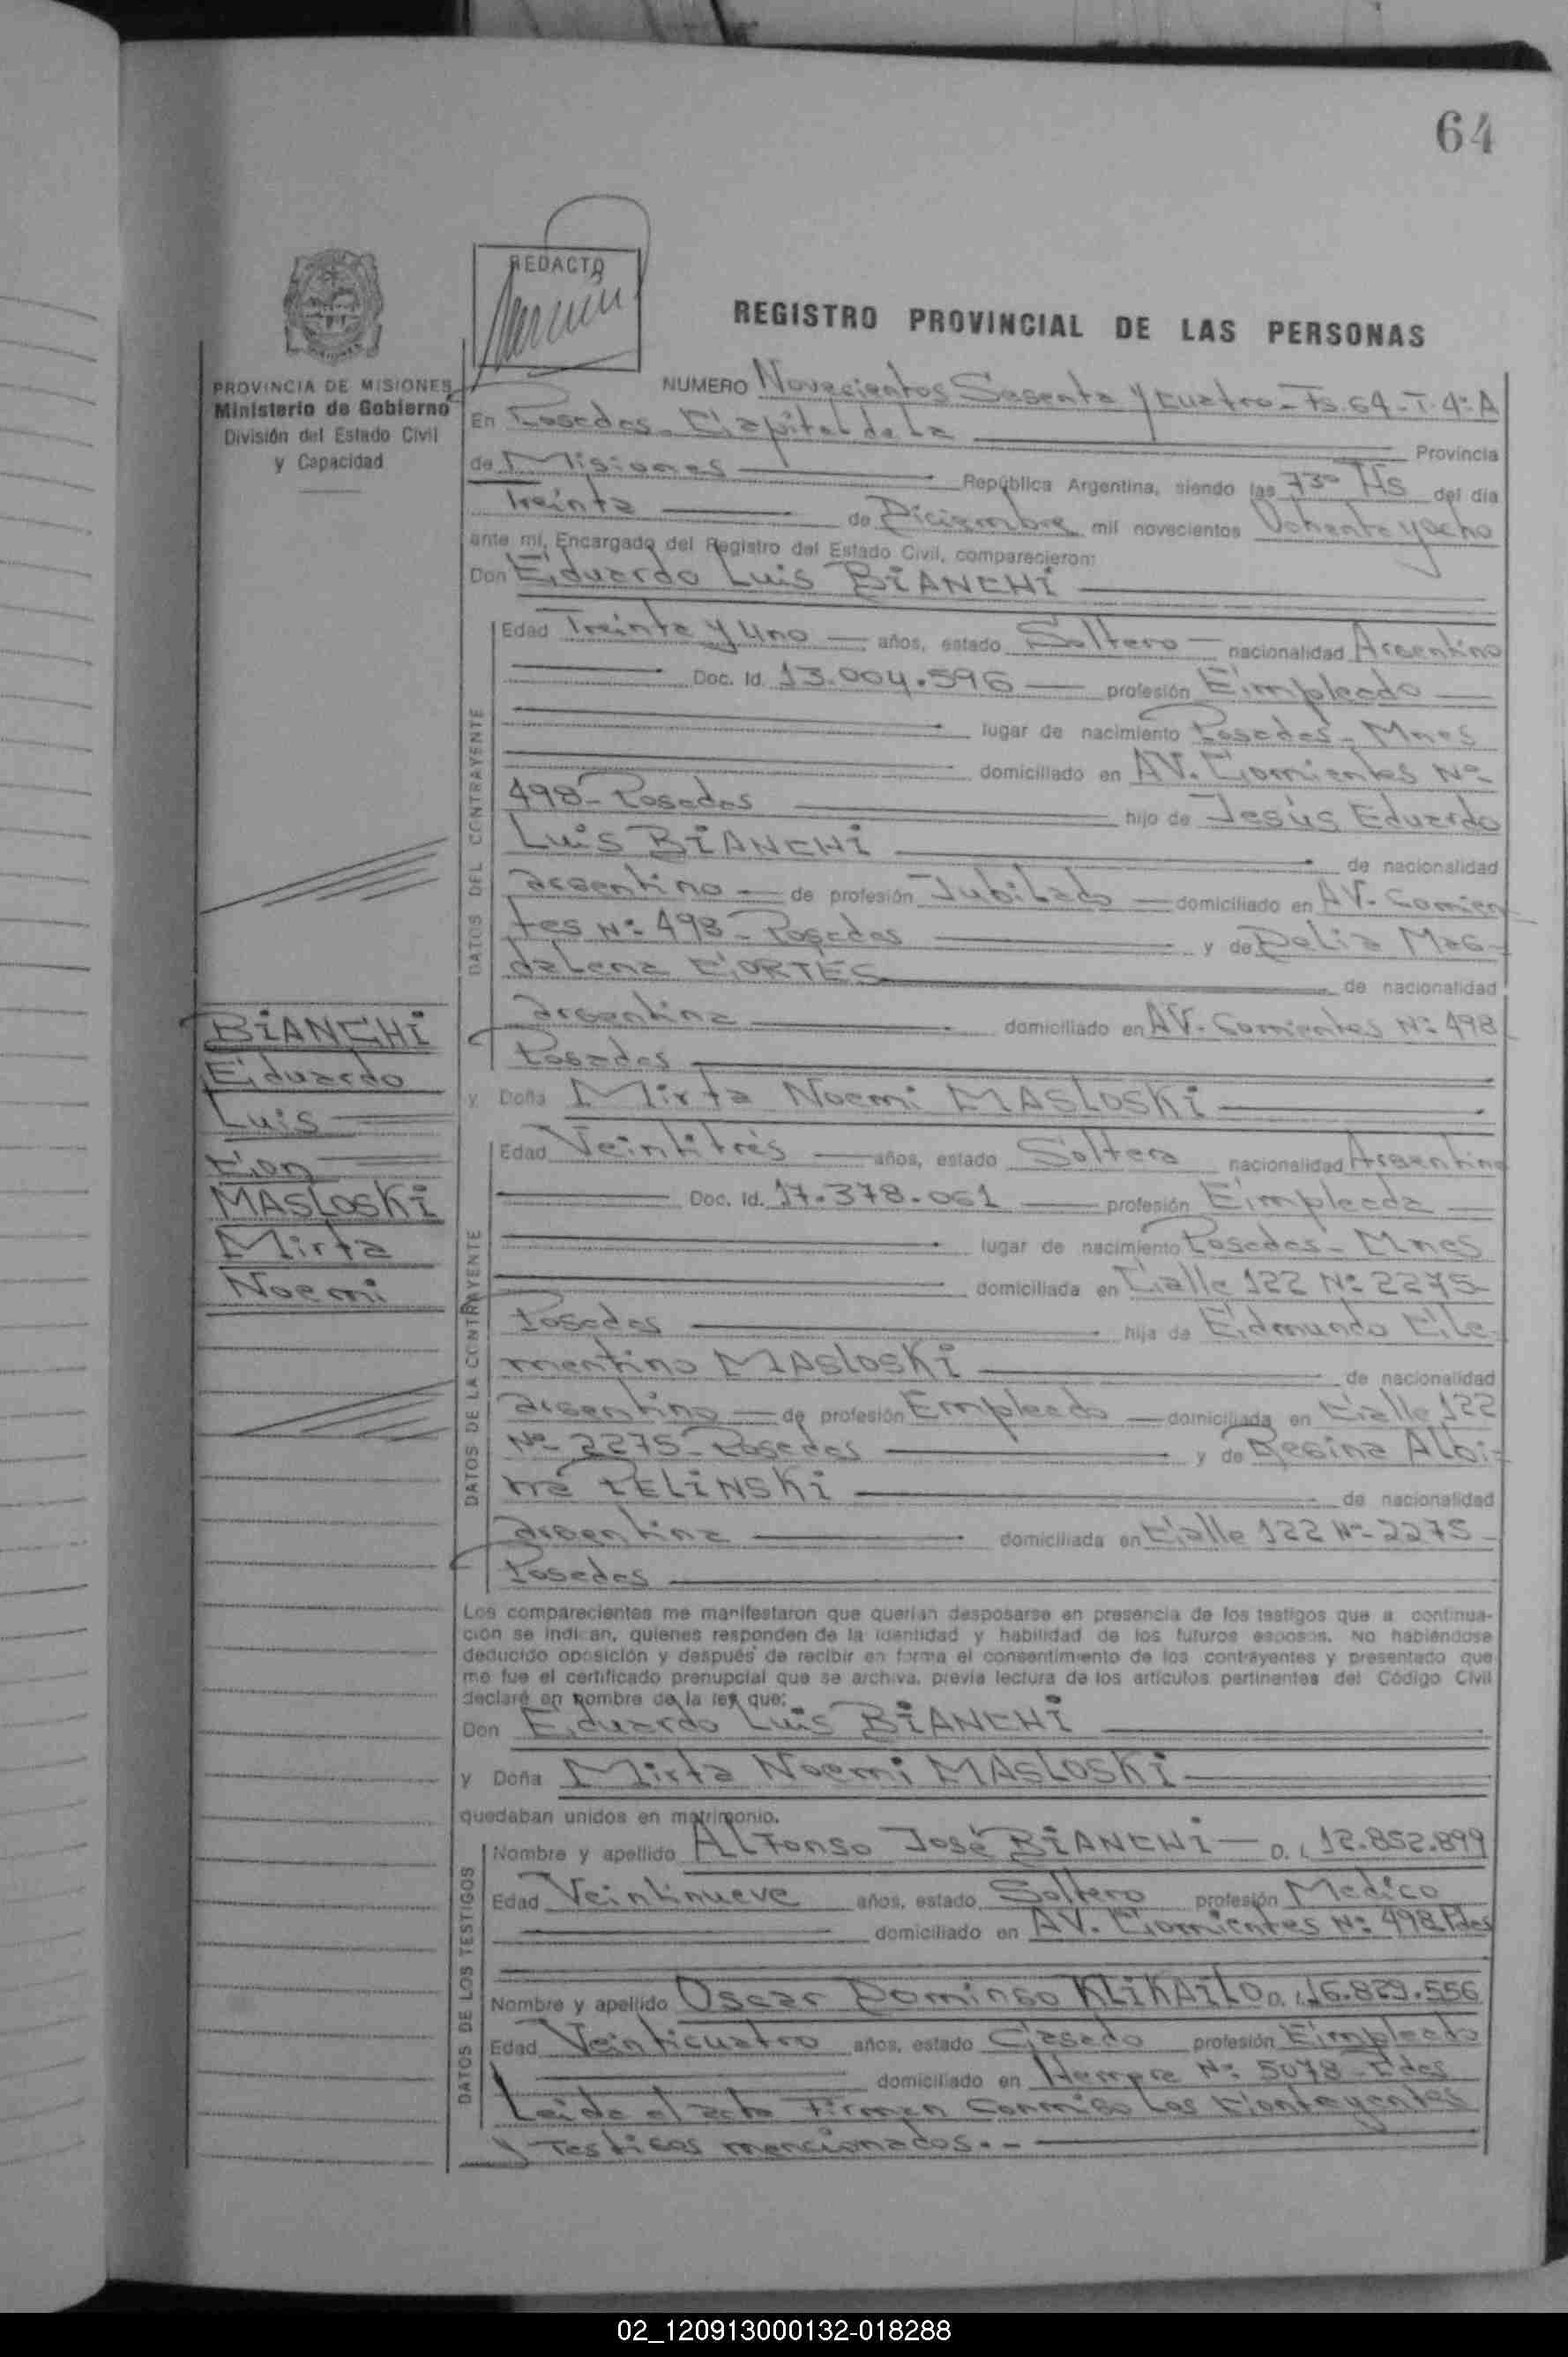 64
REDACTO
REGISTRO PROVINCIAL DE LAS PERSONAS
PROVINCIA DE MISIONES
Ministerio de Gobierno
División del Estado Civil
y Capacidad
NUMERO Novecientos Sesenta y cuatro - Fs. 64 - T. 4º A
En Posadas - Capital de la Provincia
de Misiones República Argentina, siendo las 7³⁰ Hs del día
Treinta de Diciembre mil novecientos Ochenta y ocho
ante mí, Encargado del Registro del Estado Civil, comparecieron:
Don Eduardo Luis BIANCHI
DATOS DEL CONTRAYENTE
Edad Treinta y Uno años, estado Soltero nacionalidad Argentino
Doc. Id. 13.004.596 profesión Empleado
lugar de nacimiento Posadas - Mnes
domiciliado en AV. Corrientes Nº
498 - Posadas hijo de Jesús Eduardo
Luis BIANCHI de nacionalidad
argentino de profesión Jubilado domiciliado en AV. Corrien
tes Nº 498 - Posadas y de Delia Mag-
dalena CORTES de nacionalidad
argentina domiciliado en AV. Corrientes Nº 498
Posadas
BIANCHI
Eduardo
Luis
Con
MASLOSKI
Mirta
Noemi
y Doña Mirta Noemi MASLOSKI
DATOS DE LA CONTRAYENTE
Edad Veintitrés años, estado Soltera nacionalidad Argentina
Doc. Id. 17.378.061 profesión Empleada
lugar de nacimiento Posadas - Mnes
domiciliada en Calle 122 Nº 2275
Posadas hija de Edmundo Cle-
mentino MASLOSKI de nacionalidad
argentino de profesión Empleado domiciliada en Calle 122
Nº 2275 - Posadas y de Regina Albi-
na PELINSKI de nacionalidad
argentina domiciliada en Calle 122 Nº 2275
Posadas
Los comparecientes me manifestaron que querían desposarse en presencia de los testigos que a continua-
ción se indican, quienes responden de la identidad y habilidad de los futuros esposos. No habiéndose
deducido oposición y después de recibir en forma el consentimiento de los contrayentes y presentado que
me fue el certificado prenupcial que se archiva, previa lectura de los artículos pertinentes del Código Civil
declaré en nombre de la ley que:
Don Eduardo Luis BIANCHI
y Doña Mirta Noemi MASLOSKI
quedaban unidos en matrimonio.
DATOS DE LOS TESTIGOS
Nombre y apellido Alfonso José BIANCHI D. I. 12.852.899
Edad Veintinueve años, estado Soltero profesión Medico
domiciliado en AV. Corrientes Nº 498 Pdas
Nombre y apellido Oscar Domingo KLIKAILO D. I. 16.829.556
Edad Veinticuatro años, estado Casado profesión Empleado
domiciliado en Nº 5078 - Pdas
Leida el acta Firman Conmigo Los Contrayentes
y Testigos mencionados. -
02_120913000132-018288